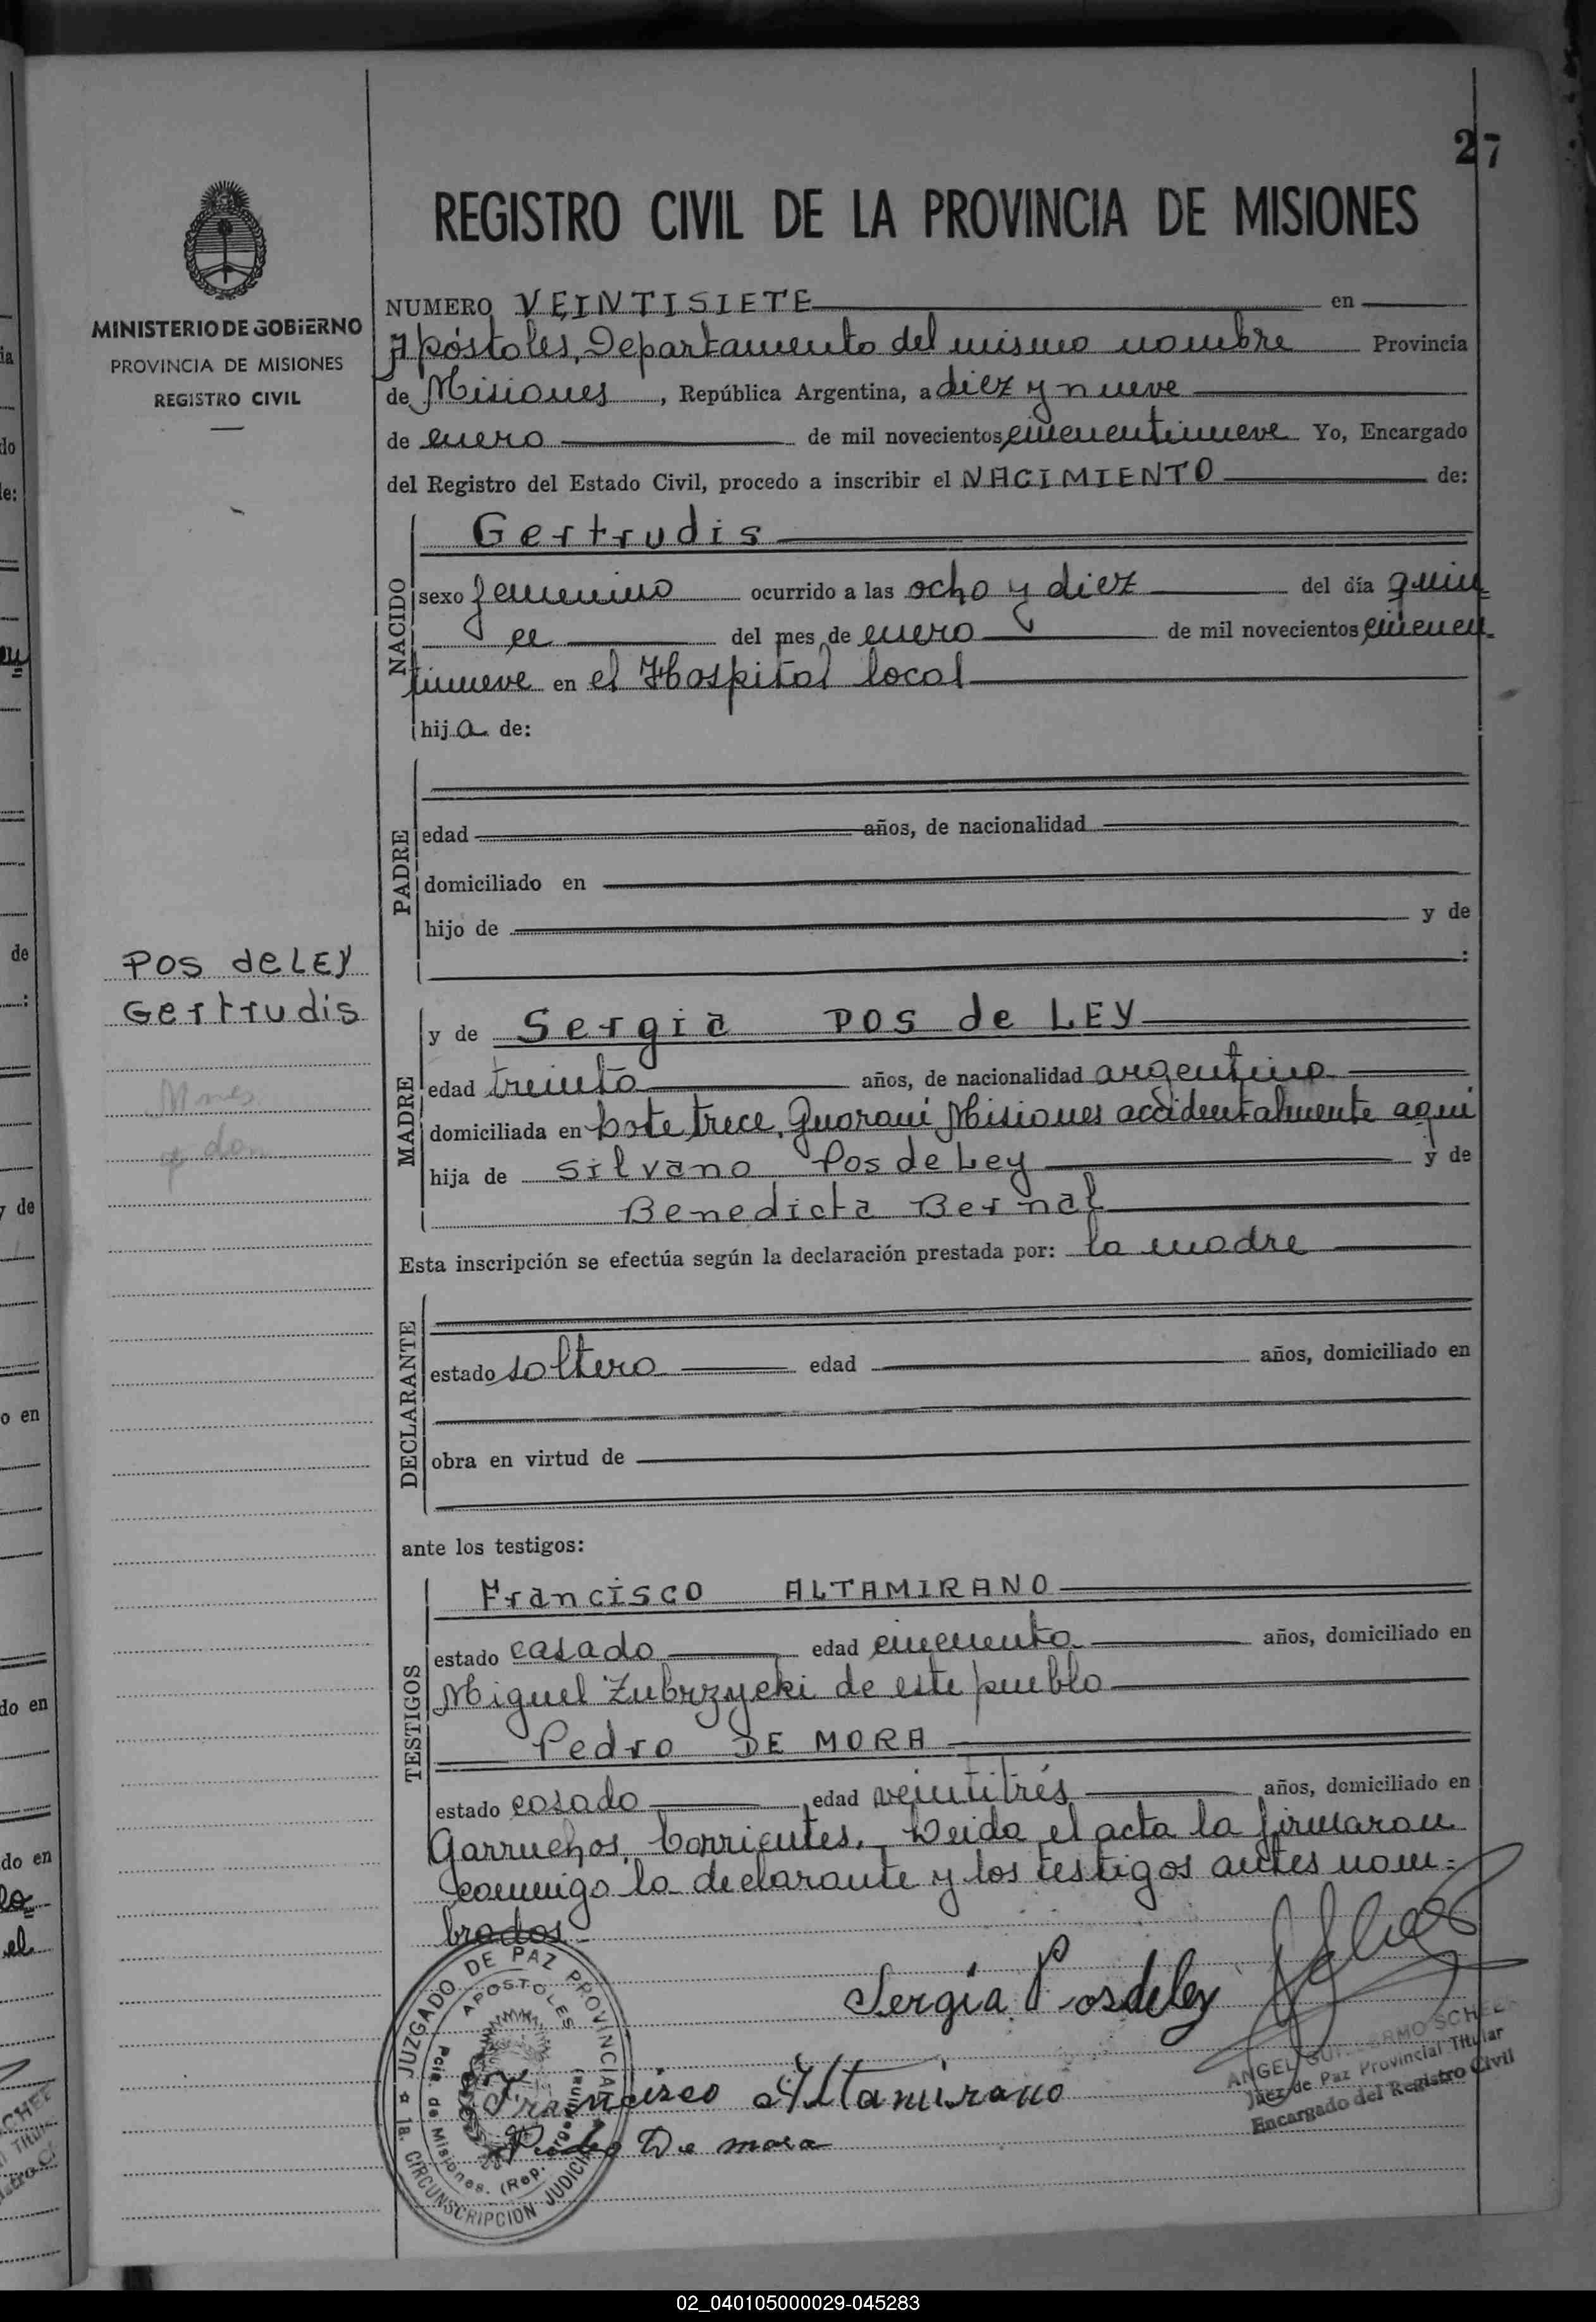 27
REGISTRO CIVIL DE LA PROVINCIA DE MISIONES
MINISTERIO DE GOBIERNO
PROVINCIA DE MISIONES
REGISTRO CIVIL
NUMERO VEINTISIETE en
Apóstoles, Departamento del mismo nombre Provincia
de Misiones, República Argentina, a diez y nueve
de enero de mil novecientos cincuentinueve Yo, Encargado
del Registro del Estado Civil, procedo a inscribir el NACIMIENTO de:
NACIDO
Gertrudis
sexo femenino ocurrido a las ocho y diez del día quin
ce del mes de enero de mil novecientos cincuen
tinueve en el Hospital local
hija de:
PADRE
edad años, de nacionalidad
domiciliado en
hijo de y de
:
POS de LEY
Gertrudis
MADRE
y de Sergia POS de LEY
edad treinta años, de nacionalidad argentina
domiciliada en Lote trece, Guaraní Misiones accidentalmente aquí
hija de Silvano Pos de Ley y de
Benedicta Bernal
Esta inscripción se efectúa según la declaración prestada por: la madre
DECLARANTE
estado soltera edad años, domiciliado en
obra en virtud de
ante los testigos:
TESTIGOS
Francisco ALTAMIRANO
estado casado edad cincuenta años, domiciliado en
Miguel Zubrzycki de este pueblo
Pedro DE MORA
estado casado edad veintitrés años, domiciliado en
Garruchos, Corrientes. Leida el acta la firmaron
conmigo la declarante y los testigos antes nom=
brados.-
Sergia Posdeley
Francisco Altamirano
Pedro De mora
JUZGADO DE PAZ PROVINCIAL
APOSTOLES
Pcia. de Misiones. (Rep. Argentina)
1a. CIRCUNSCRIPCION JUDICIAL
ANGEL GUILLERMO SCHEE
Juez de Paz Provincial Titular
Encargado del Registro Civil
02_040105000029-045283